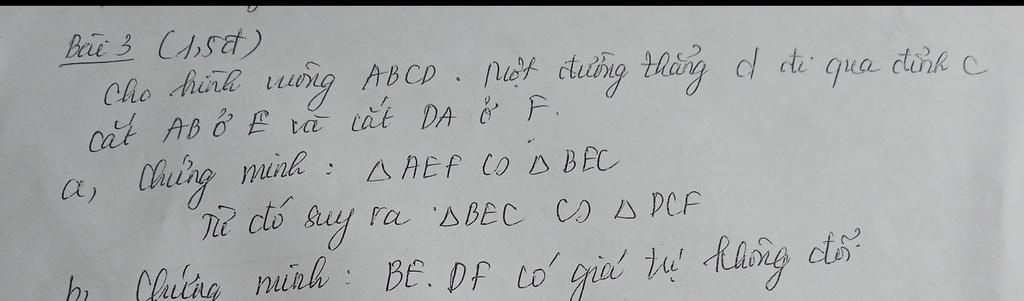 Bài 3 (1,5đ)
Cho hình vuông ABCD. Một đường thẳng d đi qua đỉnh C
cắt AB ở E và cắt DA ở F.
a, Chứng minh: △AEF ∽ △BEC
Từ đó suy ra △BEC ∽ △DCF
b, Chứng minh: BE.DF có giá trị không đổi